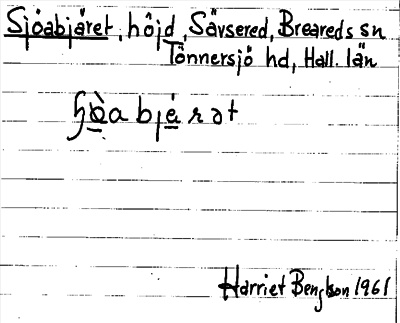 Sjöabjäret, höjd, Sävsered, Breareds sn
Tönnersjö hd, Hall. län
ɧö̀a bjä́rət
Harriet Bengtson 1961